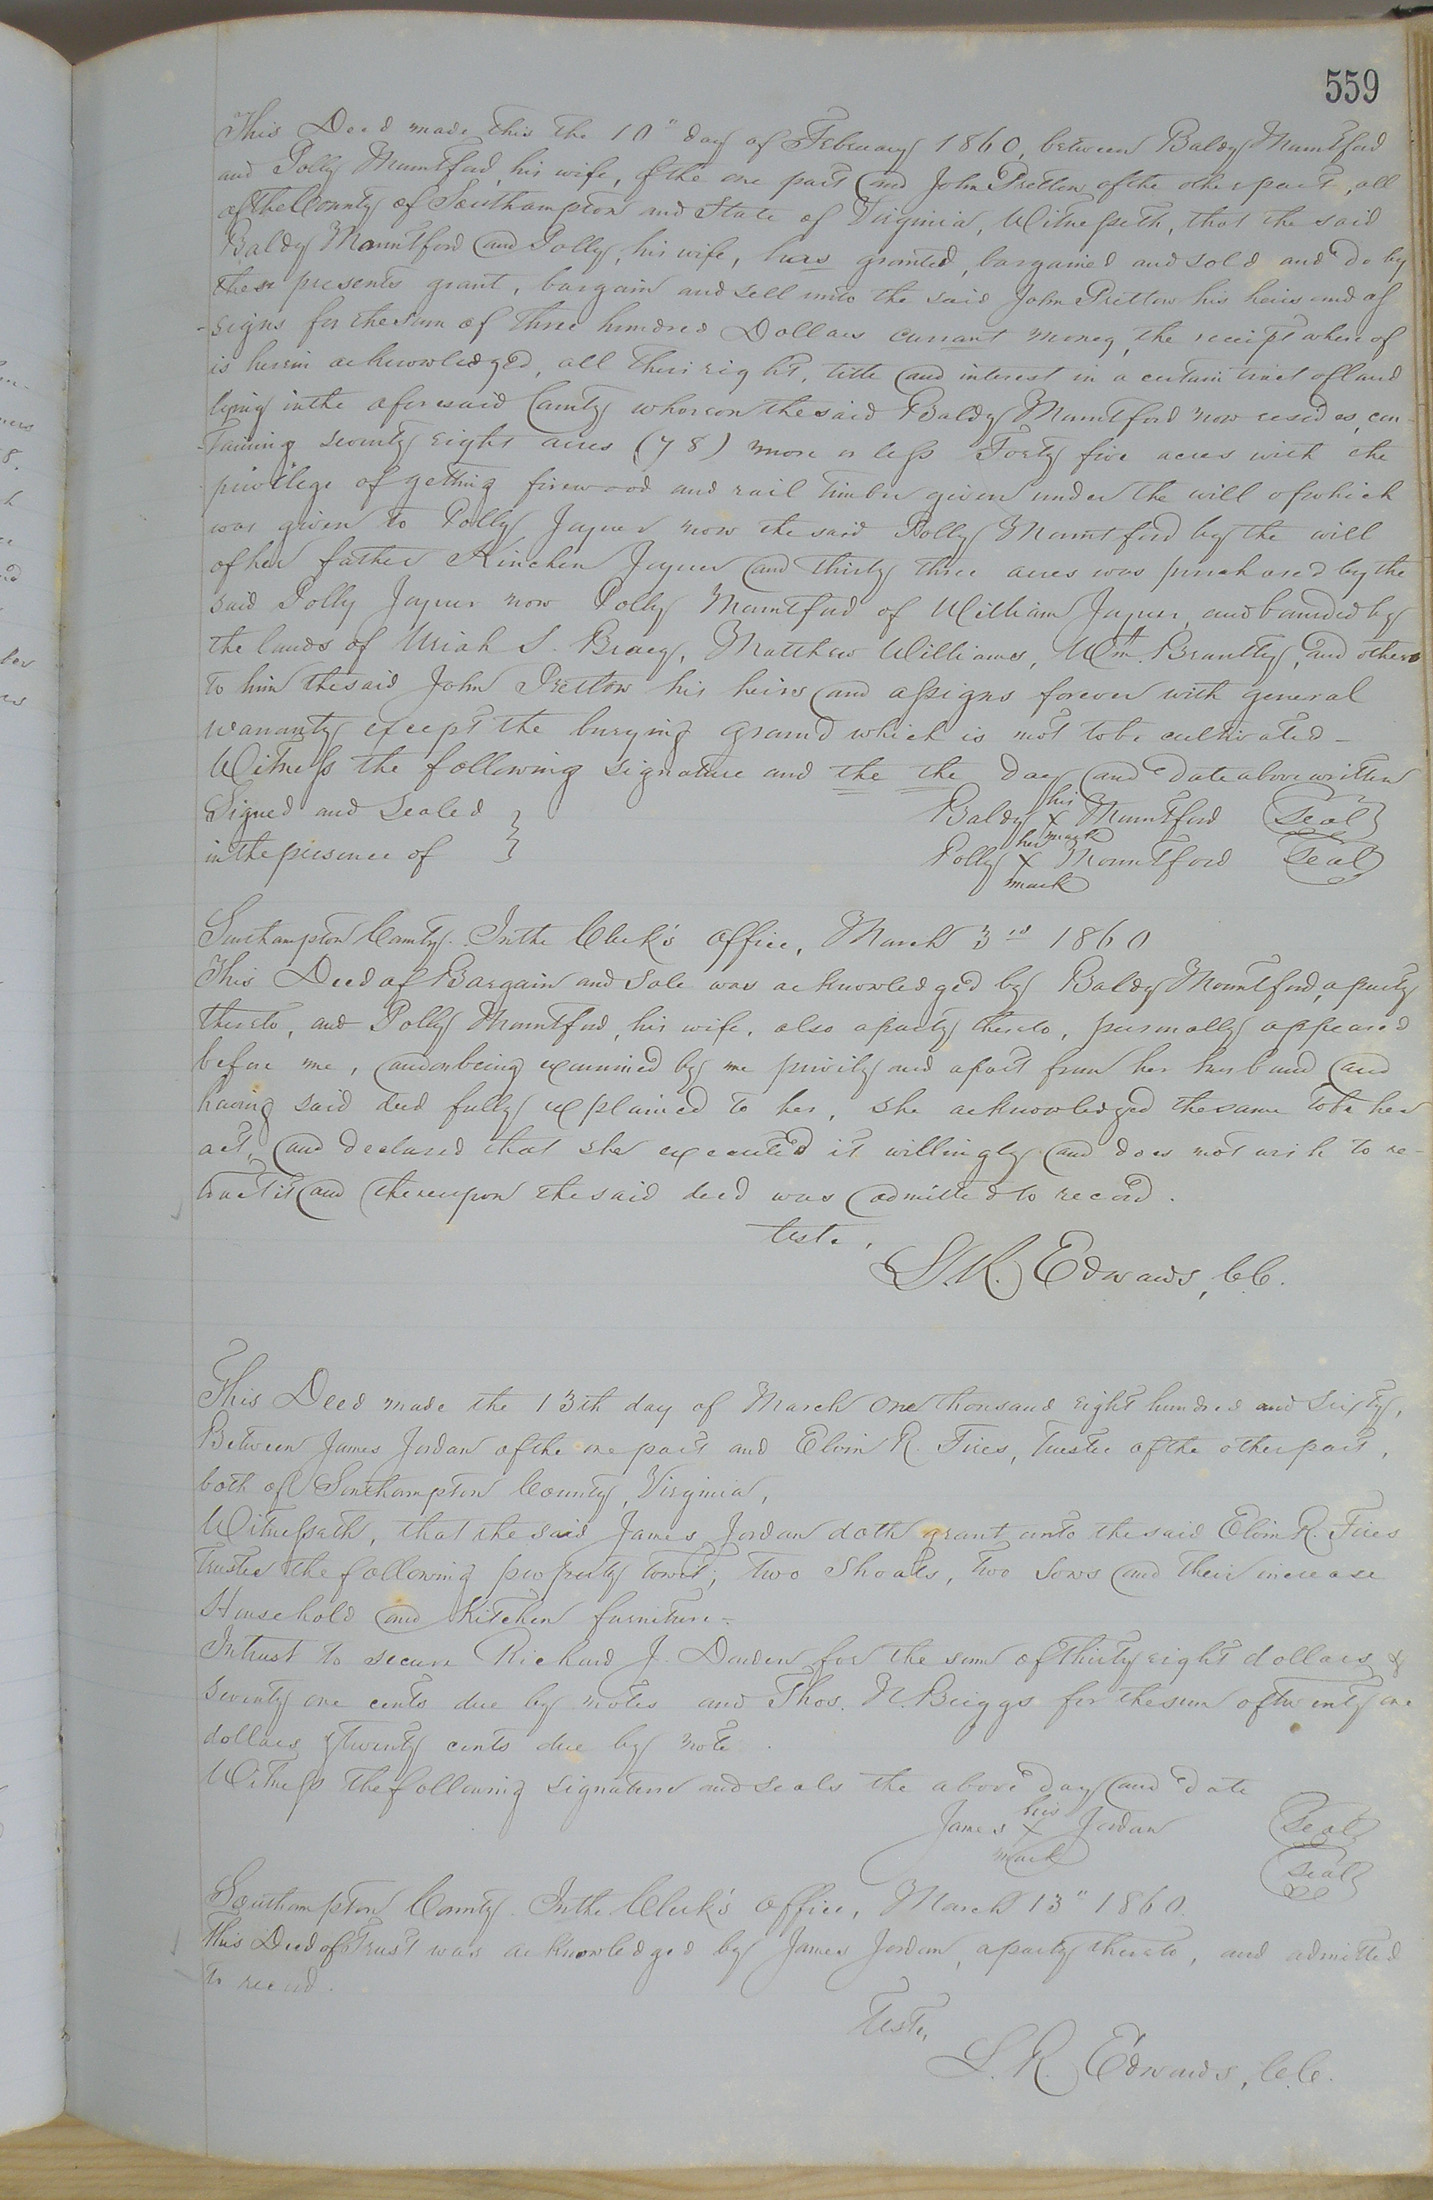 559
This Deed made this the 10" day of February 1860, between Baldy Mountford
and Polly Mountford, his wife, of the one part and John Pretlow of the other part, all
of the County of Southampton and State of Virginia, Witnesseth, that the said
Baldy Mountford and Polly, his wife, has granted, bargained and sold and do by
these presents grant, bargain and sell unto the said John Pretlow his heirs and as
-signs for the sum of three hundred Dollars currant money, the receipt where of
is herein acknowledged, all their right, title and interest in a certain tract of land
lying in the aforesaid County whereon the said Baldy Mountford now resides, con-
-taining seventy eight acres (78) more or less Forty five acres with the
privilege of getting firewood and rail timber given under the will of which
was given to Polly Joyner now the said Polly Mountford by the will
of her father Kinchen Joyner and thirty three acres was purchased by the
said Polly Joyner now Polly Mountford of William Joyner, and bounded by
the lands of Uriah S. Bracy, Matthew Williams, Wm. Brantley, and others
to him the said John Pretlow his heirs and assigns forever with general
warranty except the burying ground which is not to be cultivated –
Witness the following signature and the the day and date above written
Signed and Sealed }
in the presence of }
his
Baldy X Mountford (Seal)
mark
her
Polly X Mountford (Seal)
mark
Southampton County. In the Clerk's Office, March 3rd 1860
This Deed of Bargain and Sale was acknowledged by Baldy Mountford, a party
thereto, and Polly Mountford, his wife, also a party thereto, personally appeared
before me, and on being examined by me privily and apart from her husband and
having said deed fully explained to her, she acknowledged the same to be her
act, and declared that she executed it willingly and does not wish to re-
tract it and thereupon the said deed was admitted to record.
Teste,
L. R. Edwards, C.C.
This Deed made the 13th day of March One thousand eight hundred and Sixty,
Between James Jordan of the one part and Elvin R. Fires, Trustee of the other part,
both of Southampton County, Virginia,
Witnesseth, that the said James Jordan doth grant unto the said Elvin R. Fires
Trustee the following property towit; two Shoats, two Sows and their increase
Household and Kitchen furniture –
In trust to secure Richard J. Darden for the sum of thirty eight dollars &
seventy one cents due by notes and Thos. N. Briggs for the sum of twenty one
dollars & twenty cents due by note.
Witness the following signature and seals the above day and date
his
James X Jordan (Seal)
mark
(Seal)
Southampton County. In the Clerk's Office, March 13" 1860.
This Deed of Trust was acknowledged by James Jordan, a party thereto, and admitted
to record.
Teste,
L. R. Edwards, C.C.